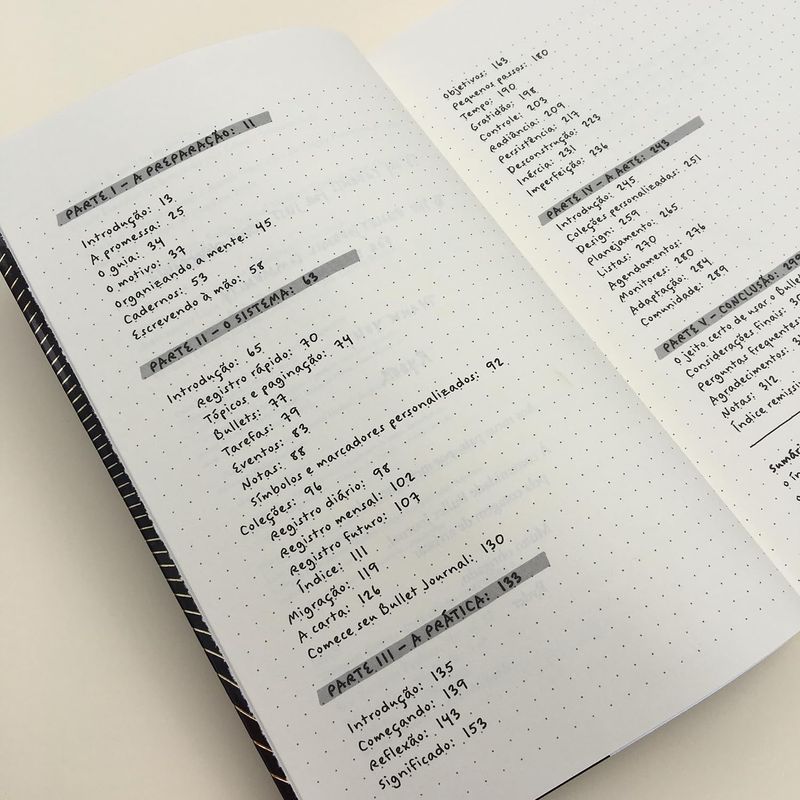 PARTE I - A PREPARAÇÃO: 11
Introdução: 13
A promessa: 25
O guia: 34
O motivo: 37
Organizando a mente: 45
Cadernos: 53
Escrevendo à mão: 58
PARTE II - O SISTEMA: 63
Introdução: 65
Registro rápido: 70
Tópicos e paginação: 74
Bullets: 77
Tarefas: 79
Eventos: 83
Notas: 88
Símbolos e marcadores personalizados: 92
Coleções: 96
Registro diário: 98
Registro mensal: 102
Registro futuro: 107
Índice: 111
Migração: 119
A carta: 126
Comece seu Bullet Journal: 130
PARTE III - A PRÁTICA: 133
Introdução: 135
Começando: 139
Reflexão: 143
Significado: 153
Objetivos: 163
Pequenos passos: 180
Tempo: 190
Gratidão: 198
Controle: 203
Radiância: 209
Persistência: 217
Desconstrução: 223
Inércia: 231
Imperfeição: 236
PARTE IV - A ARTE: 243
Introdução: 245
Coleções personalizadas: 251
Design: 259
Planejamento: 265
Listas: 270
Agendamentos: 276
Monitores: 280
Adaptação: 284
Comunidade: 289
PARTE V - CONCLUSÃO:
O jeito certo de usar o Bullet
Considerações finais:
Perguntas frequentes
Agradecimentos:
Notas: 312
Índice